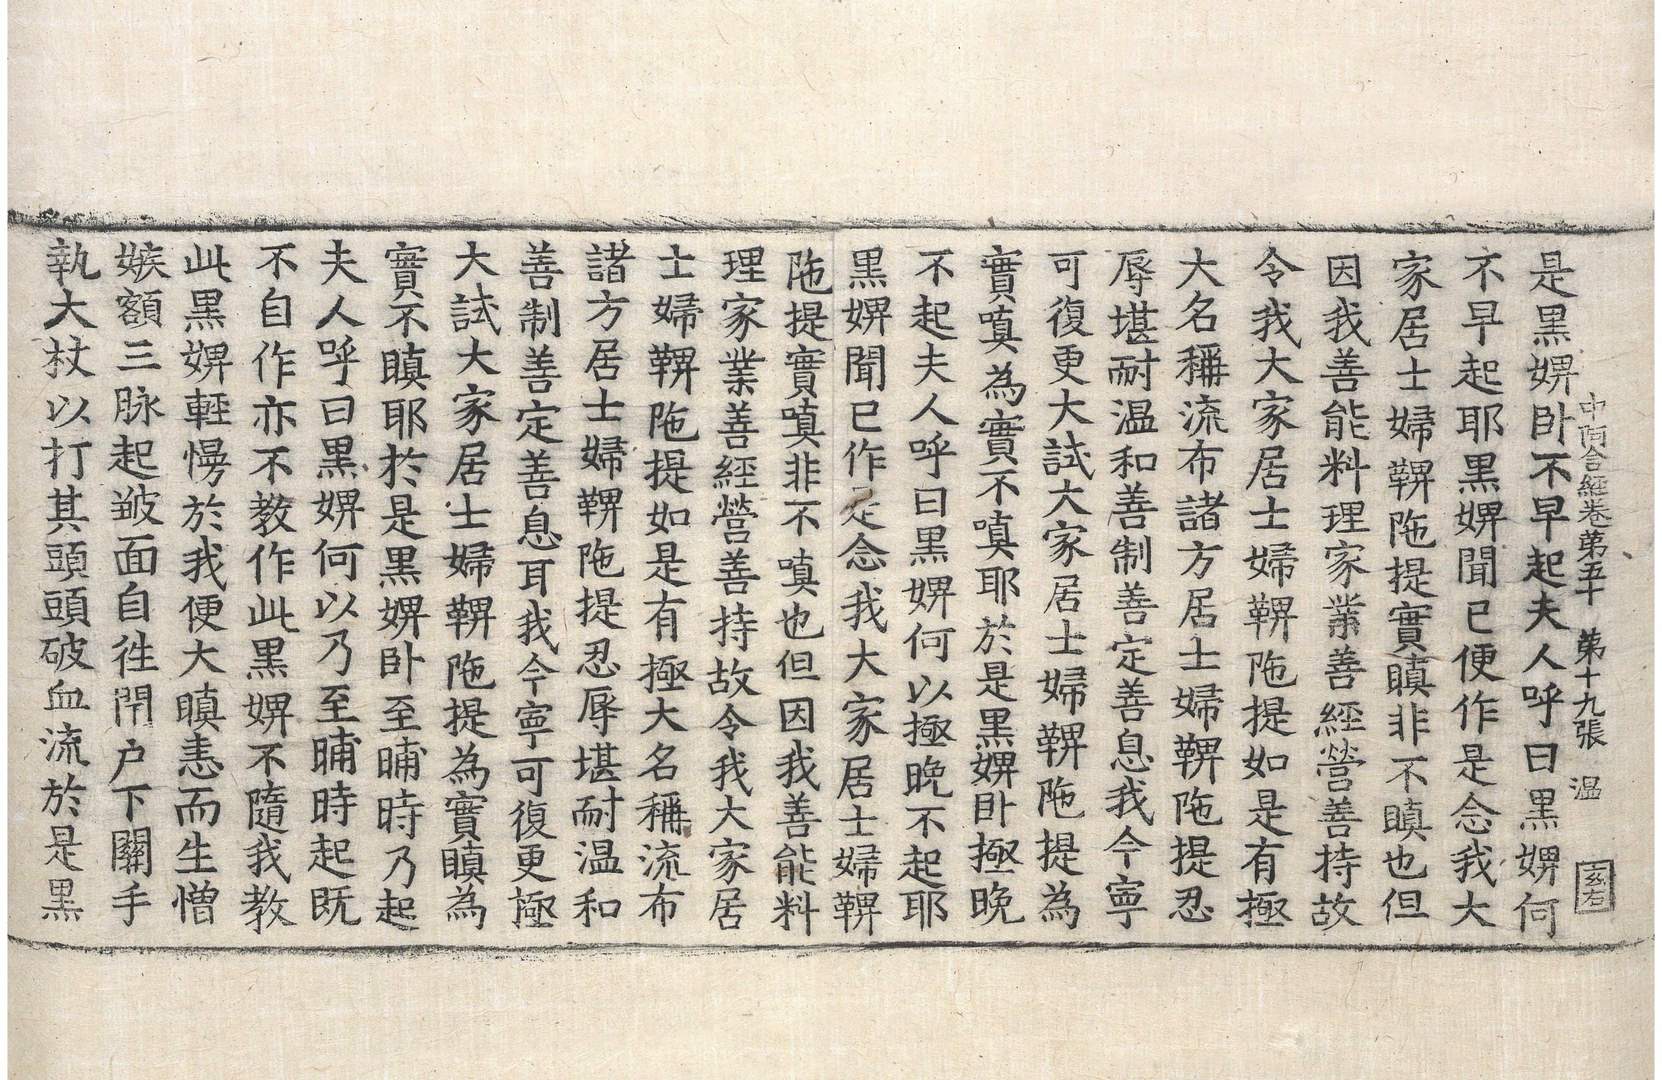 中阿含經卷第五十 第十九張 温
是黒婢卧不早起夫人呼曰黒婢何
不早起耶黒婢聞已便作是念我大
家居士婦鞞陁提實瞋非不瞋也但
因我善能料理家業善經營善持故
令我大家居士婦鞞陁提如是有極
大名稱流布諸方居士婦鞞陁提忍
辱堪耐温和善制善定善息我今寧
可復更大試大家居士婦鞞陁提為
實嗔為實不嗔耶於是黒婢卧極晚
不起夫人呼曰黒婢何以極晚不起耶
黒婢聞已作是念我大家居士婦鞞
陁提實嗔非不嗔也但因我善能料
理家業善經營善持故令我大家居
士婦鞞陁提如是有極大名稱流布
諸方居士婦鞞陁提忍辱堪耐温和
善制善定善息耳我今寧可復更極
大試大家居士婦鞞陁提為實瞋為
實不瞋耶於是黒婢卧至晡時乃起
夫人呼曰黒婢何以乃至晡時起既
不自作亦不教作此黒婢不隨我教
此黒婢輕慢於我便大瞋恚而生憎
嫉額三脉起皺面自往閇户下關手
執大杖以打其頭頭破血流於是黒